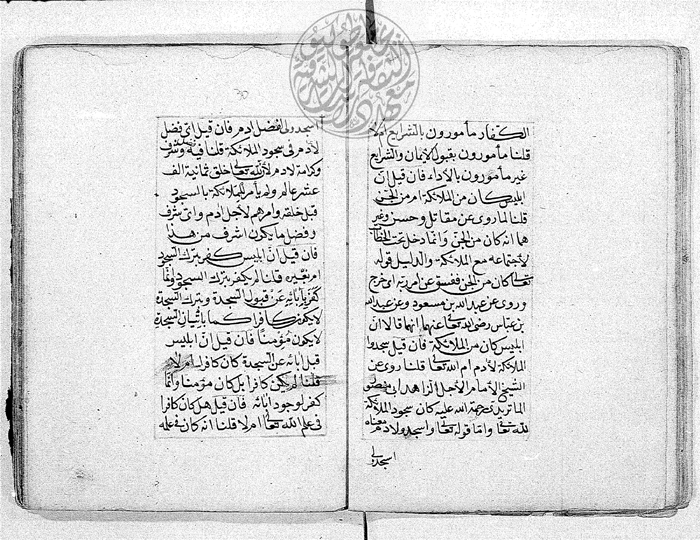 الكفار مأمورون بالشرايع ام لا
قلنا مأمورون بقبول الايمان والشرايع
غير مأمورون بالاداء فان قيل انّ
ابليس كان من الملائكة ام من الجنّ
قلنا لما روى عن مقاتل وحسن وغير
هما انه كان من الجنّ وانما دخل تحت الخطاب
لاجتماعه مع الملائكة والدليل قوله
تعا كان من الجن ففسق عن امر ربه اى خرج
وروى عن عبد الله بن مسعود وعن عبد الله
بن عباس رضى الله تعا عنهما انهما قالا ان
ابليس كان من الملائكة فان قيل سجدوا
الملائكة لادم ام الله تعا قلنا روى عن
الشيخ الامام الاجل الزاهد ابى منصور
الماتريدى رحمة الله عليه كان سجود الملائكة
لله تعا وامّا قوله تعا واسجدو لادم معناه
اسجدولى
اسجدولى لفضل ادم فان قيل اىّ فضل
لادم فى سجود الملائكة قلنا فيه وشرف
وكرامة لادم لان الله تعالى خلق ثمانية الف
عشر عالم ولم يأمر للملائكة بالسجود
قبل خلقه وامرهم لاجل ادم واىّ شرف
وفضل ما يكون اشرف من هذا
فان قيل انّ ابليس كفر بترك السجدة
ام بغيره قلنا لم يكفر بترك السجود وانما
كفر بابائه عن قبول السجدة وبترك السجدة
لا يكون كافرا كما باتيان السجدة
لا يكون مؤمناً فان قيل انّ ابليس
قبل ابائه عن السجدة كان كافرا ام لا
قلنا لم يكن كافرا بل كان مؤمنا وانما
كفر لوجود ابائه فان قيل هل كان كافرا
فى علم الله تعا ام لا قلنا انه كان فى علمه